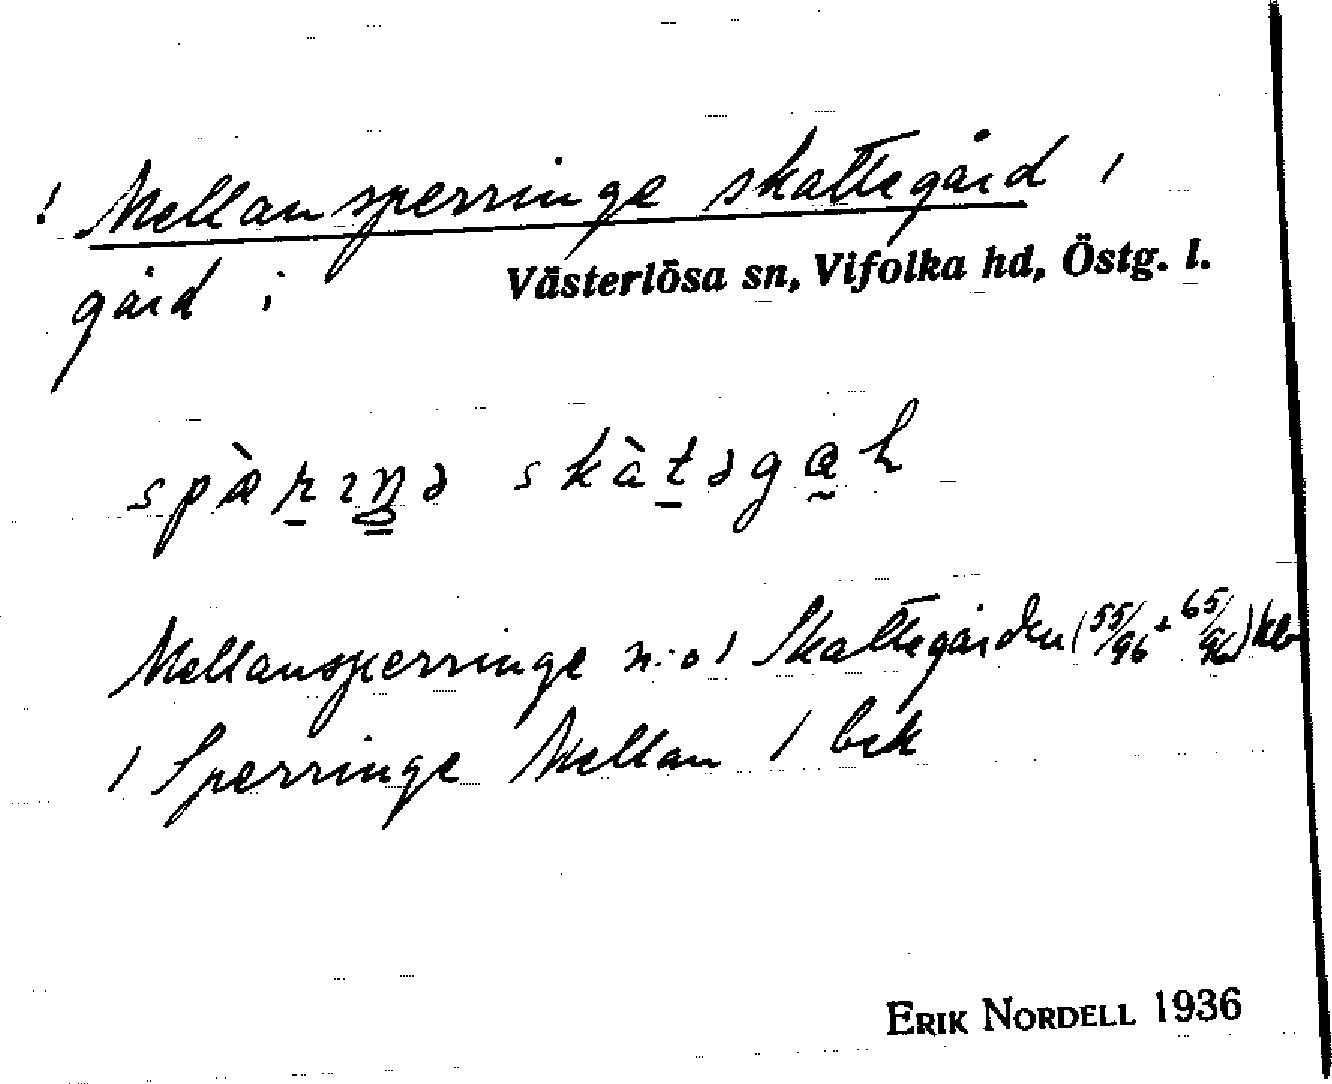 ! Mellansperringe skattegård /
gård i Västerlösa sn, Vifolka hd, Östg. l.
spæ̀rıŋə skàtəgah
Mellansperringe n:o 1 Skattegården (55/96 + 65/96) kb
1 Sperringe Mellan 1 bek
ERIK NORDELL 1936